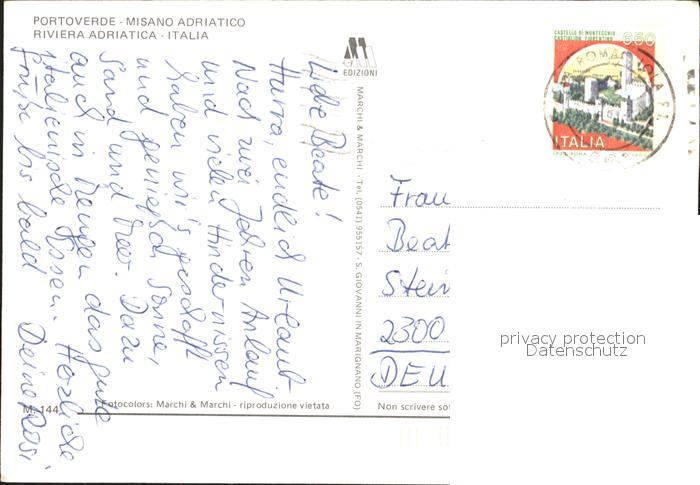 PORTOVERDE - MISANO ADRIATICO
RIVIERA ADRIATICA - ITALIA
Liebe Beate!
Hurra, endlich Urlaub
Nach zwei Jahren Anlauf
und vielen Hindernissen
haben wir's geschafft
und genießen Sonne,
Sand und Meer. Dazu
auch in Mengen das gute
italienische Essen. Herzliche
Grüße bis bald Deine Rosi
M. 144
Fotocolors: Marchi & Marchi - riproduzione vietata
EDIZIONI
MARCHI & MARCHI - Tel. (0541) 955157 - S. GIOVANNI IN MARIGNANO (FO)
CASTELLO DI MONTECCHIO
CASTIGLION FIORENTINO
650
ITALIA
Frau
Beat
Stein
2300
DEU
Non scrivere sot
privacy protection
Datenschutz